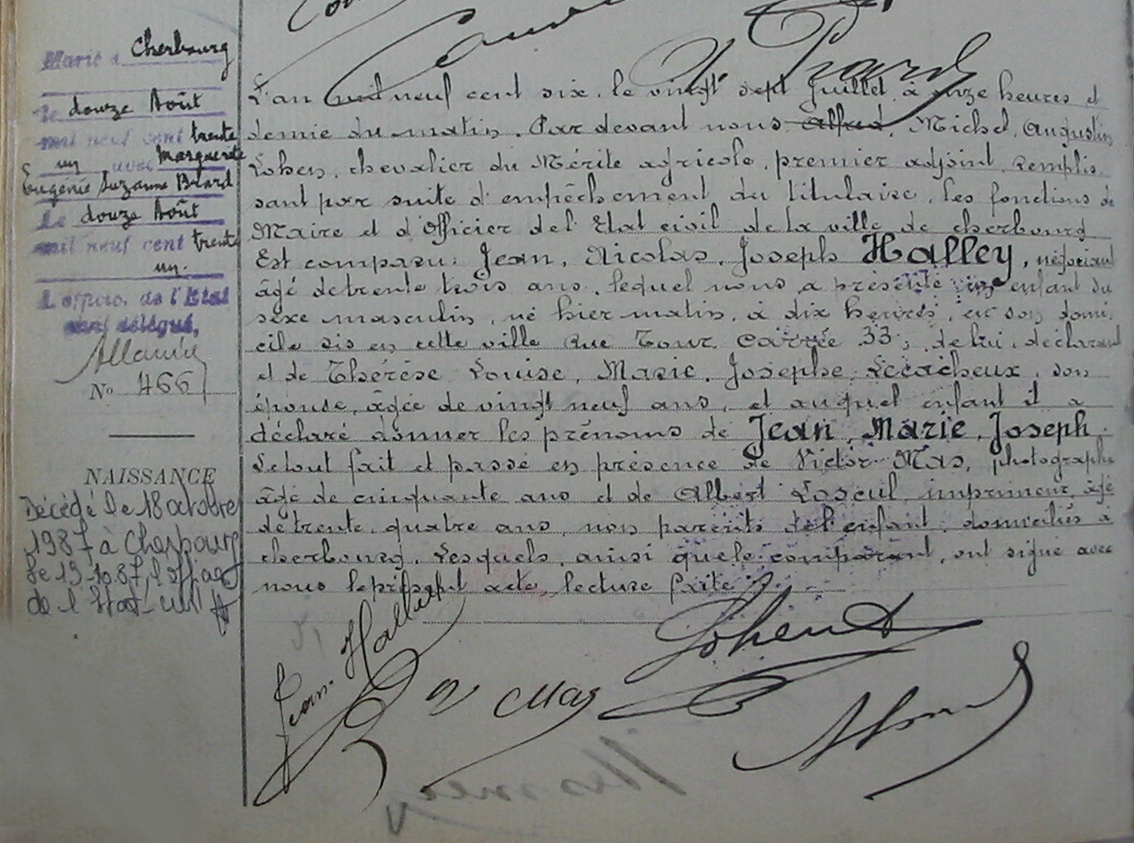 Marié à Cherbourg
le douze Août
mil neuf cent trente
un avec Marguerite
Eugénie Suzanne Biard
Le douze Août
mil neuf cent trente
un.
L'officier de l'Etat
civil délégué,
No 466
NAISSANCE
Décédé le 18 octobre
1987 à Cherbourg
le 19-10-87, l'officier
de l'Etat-civil
L'an mil neuf cent six, le vingt sept Juillet à onze heures et
demie du matin. Par devant nous Alfred, Michel, Augustin
chevalier du Mérite agricole, premier adjoint, remplis-
sant par suite d'empêchement du titulaire, les fonctions de
Maire et d'Officier de l'Etat civil de la ville de cherbourg
Est comparu: Jean, Nicolas, Joseph Halley, négociant
âgé de trente trois ans, lequel nous a présenté un enfant du
sexe masculin, né hier matin, à dix heures, en son domi-
cile sis en cette ville Rue Tour Carrée 33, de lui déclarant
et de Thérèse, Louise, Marie, Josephe Lécacheux, son
épouse, âgée de vingt neuf ans, et auquel enfant il a
déclaré donner les prénoms de Jean, Marie, Joseph.
Le tout fait et passé en présence de Victor Mas, photographe
âgé de cinquante ans et de Albert Loseul imprimeur, âgé
de trente quatre ans, non parents de l'enfant, domiciliés à
cherbourg, Lesquels, ainsi que le comparant, ont signé avec
nous le présent acte, lecture faite.
Jean Halley
V Mas